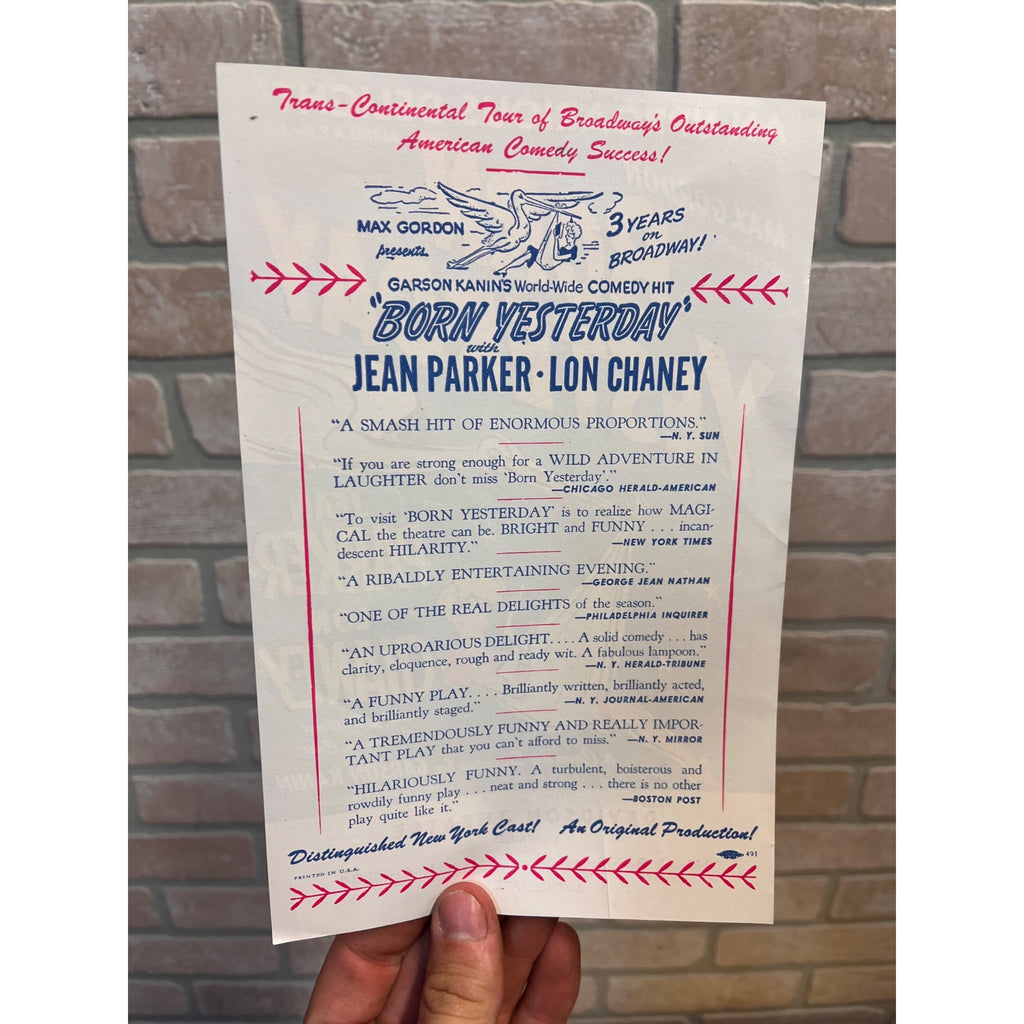 Trans-Continental Tour of Broadway's Outstanding
American Comedy Success!
MAX GORDON
presents
3 YEARS
on
BROADWAY!
GARSON KANIN'S World-Wide COMEDY HIT
"BORN YESTERDAY"
with
JEAN PARKER · LON CHANEY
"A SMASH HIT OF ENORMOUS PROPORTIONS."
—N. Y. SUN
"If you are strong enough for a WILD ADVENTURE IN
LAUGHTER don't miss 'Born Yesterday'."
—CHICAGO HERALD-AMERICAN
"To visit 'BORN YESTERDAY' is to realize how MAGI-
CAL the theatre can be. BRIGHT and FUNNY . . . incan-
descent HILARITY."
—NEW YORK TIMES
"A RIBALDLY ENTERTAINING EVENING."
—GEORGE JEAN NATHAN
"ONE OF THE REAL DELIGHTS of the season."
—PHILADELPHIA INQUIRER
"AN UPROARIOUS DELIGHT. . . . A solid comedy . . . has
clarity, eloquence, rough and ready wit. A fabulous lampoon."
—N. Y. HERALD-TRIBUNE
"A FUNNY PLAY. . . . Brilliantly written, brilliantly acted,
and brilliantly staged."
—N. Y. JOURNAL-AMERICAN
"A TREMENDOUSLY FUNNY AND REALLY IMPOR-
TANT PLAY that you can't afford to miss." —N. Y. MIRROR
"HILARIOUSLY FUNNY. A turbulent, boisterous and
rowdily funny play . . . neat and strong . . . there is no other
play quite like it."
—BOSTON POST
Distinguished New York Cast! An Original Production!
PRINTED IN U.S.A.
491